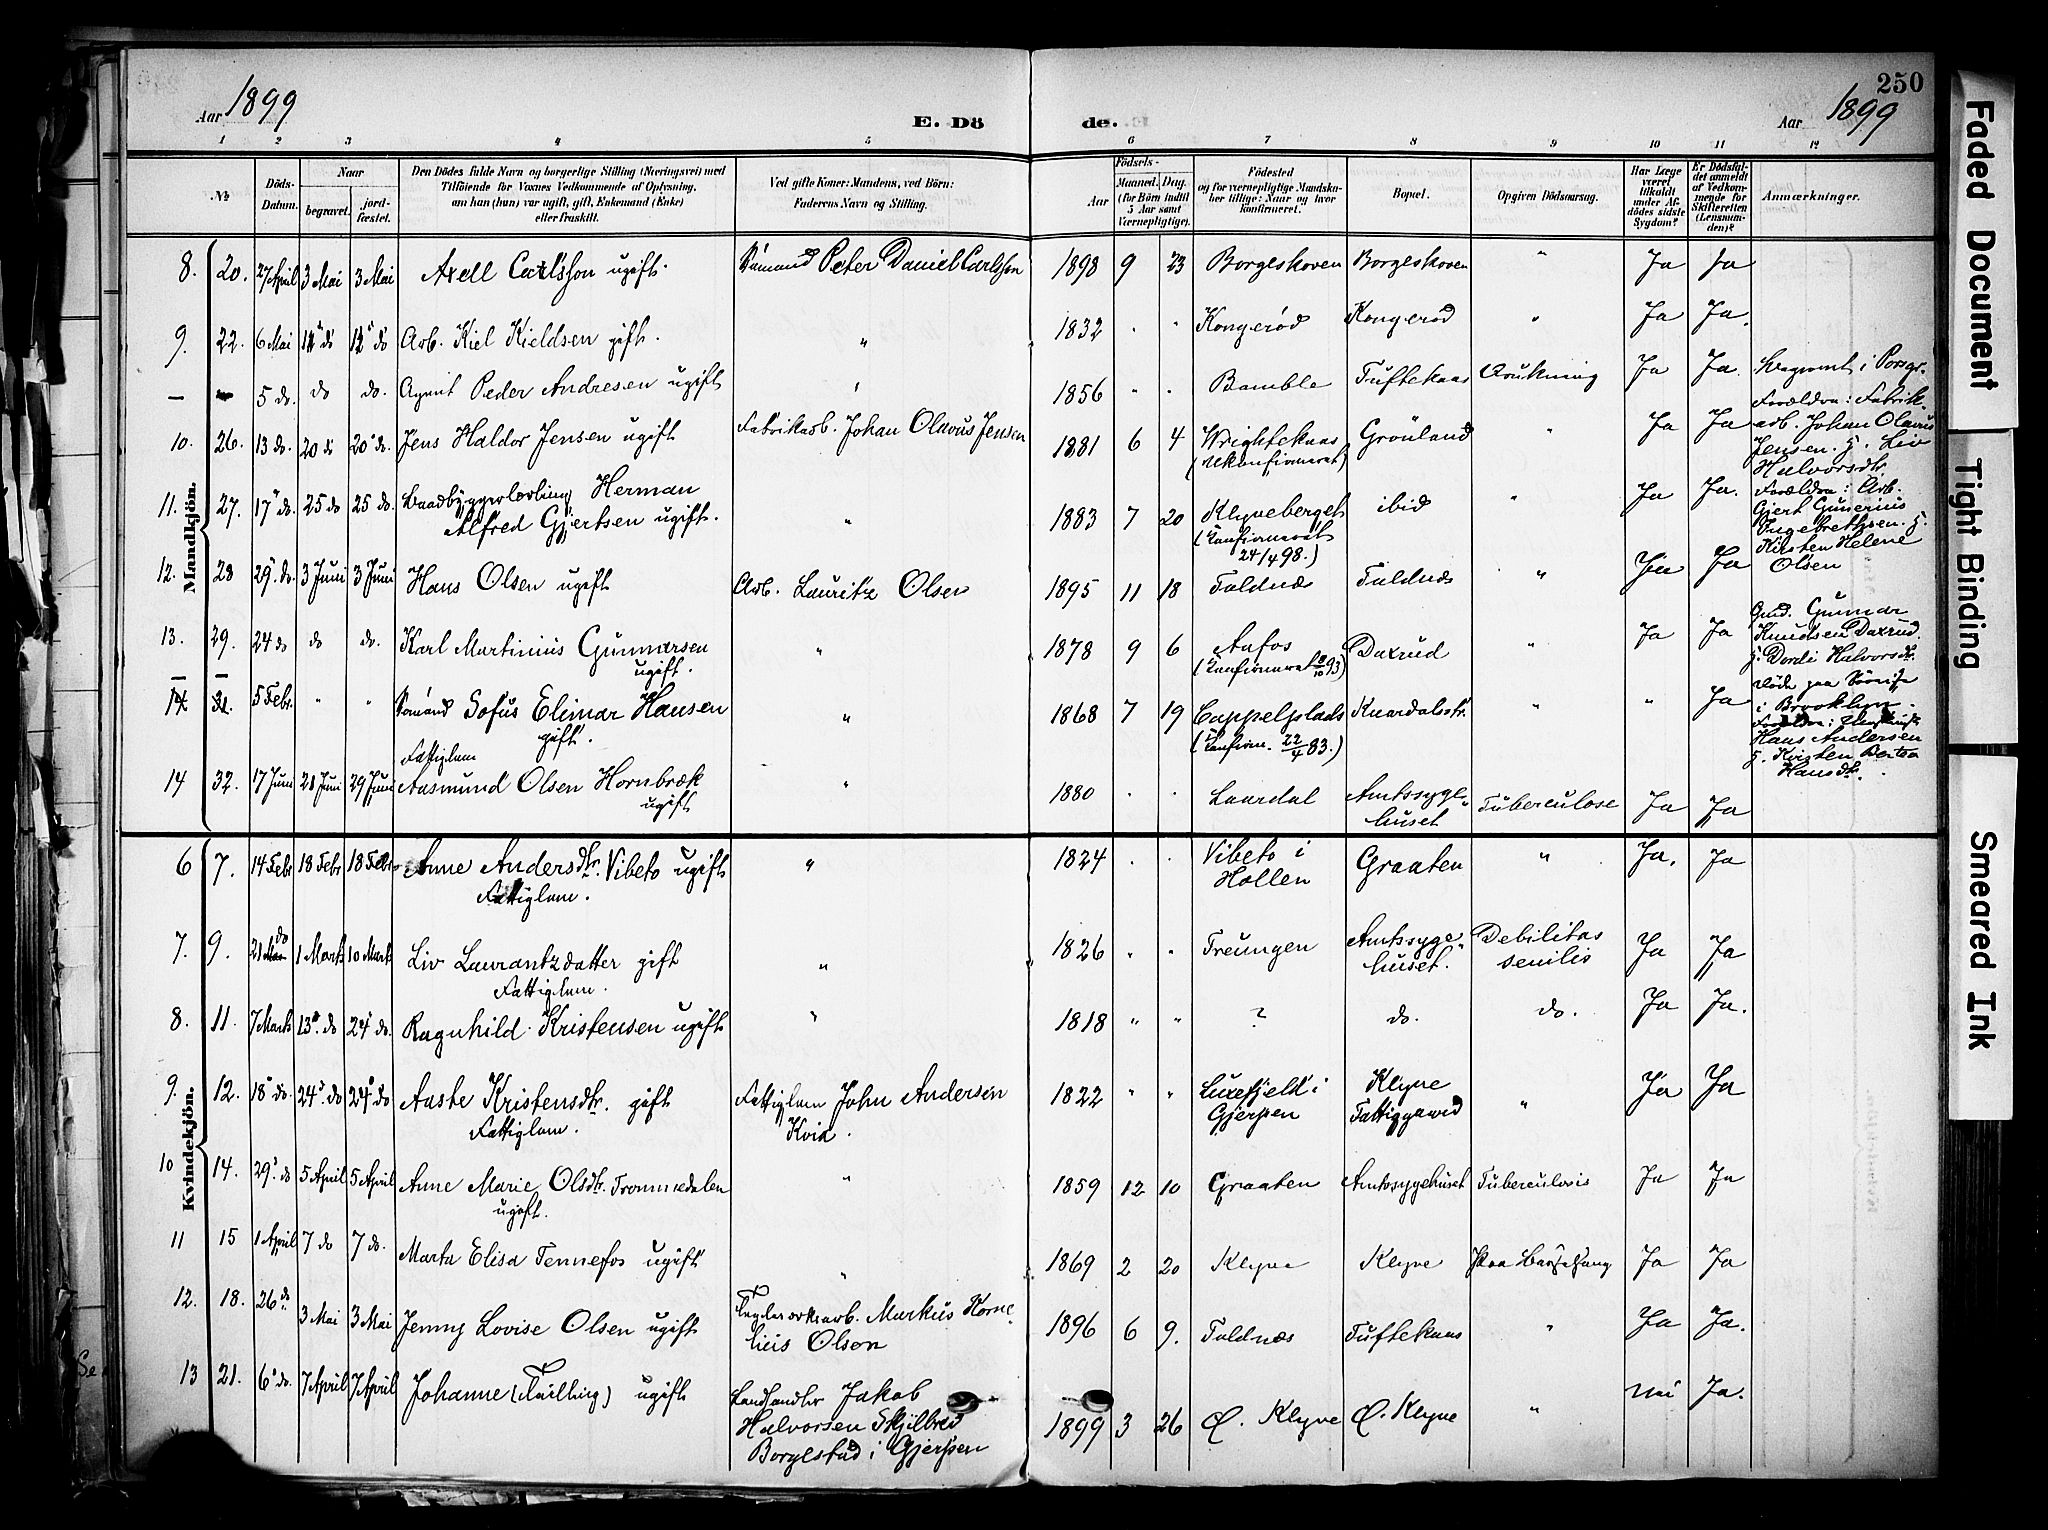 250
Aar 1899
E. Dö
de.
Aar 1899
1 2 3 4 5 6 7 8 9 10 11 12
№
Döds-
Datum.
Naar
begravet. jord-
fæstet.
Den Dödes fulde Navn og borgerlige Stilling (Næringsvei) med
Tilföiende for Voxnes Vedkommende af Oplysning,
om han (hun) var ugift, gift, Enkemand (Enke)
eller fraskilt.
Ved gifte Koner: Mandens, ved Börn:
Faderens Navn og Stilling.
Aar
Födsels-
Maaned. Dag.
(for Börn indtil
5 Aar samt
Værnepligtige).
Födested
og for værnepligtige Mandska-
ber tillige: Naar og hvor
konfirmeret.
Bopæl.
Opgiven Dödsaarsag.
Har Læge
været
tilkaldt
under Af-
dödes sidste
Sygdom?
Er Dödsfal-
det anmeldt
af Vedkom-
mende for
Skifteretten
(Lensman-
den)?
Anmærkninger.
Mandkjön.
8. 20. 27 April 3 Mai 3 Mai Axell Carlsson ugift. Sømand Peter Daniel Carlsson 1898 9 23 Borgeskoven Borgeskoven " Ja Ja
9. 22. 6 Mai do do Arb. Kiel Kieldsen gift. " 1832 " " Kongerød Kongerød " Ja Ja.
— 5 do. do do. Agent Peder Andresen ugift " 1856 " " Bamble Tuftekaas Drukning Ja Ja.
10. 26. 13 do. 20 do 20 do. Jens Haldor Jensen ugift Fabrikarb. Johan Olavus Jensen 1881 6 4 Wrightekaas Grönland " Ja Ja
(Ukonfirmeret)
Forældre: Fabrik-
arb. Johan Olavus
Jensen. g. Liv
Halvorsdtr.
11. 27. 17 do. 25 do 25 do. Baadbyggerlærling Herman
Alfred Gjertsen ugift. " 1883 7 20 Klyveberget ibid " Ja Ja.
(Konfirmeret
24/4 98.)
Forældre: Arb.
Gjert Gunerius
Ingebrethsen. g.
Kirsten Helene
Olsen
12. 28 29 do. 3 Juni 3 Juni Hans Olsen ugift Arb. Lauritz Olsen 1895 11 18 Foldnæs Foldnæs " Ja Ja
13. 29. 24 do do do. Karl Martinius Gunnarsen
ugift. " 1878 9 6 Aafos Daxrud " Ja Ja
Gmd. Gunnar
Knudsen Daxrud.
g. Dordi Halvorsdtr.
14 31. 5 Febr. " " Sømand Sofus Elimar Hansen
gift. " 1868 7 19 Cappelplads Knardalsstr. " " Ja
(Konfirm. 22/4 83.)
i Brooklyn.
Hans Andersen
g. Kirsten Bertea
Hansdtr.
14 32. 17 Juni 28 Juni 29 Juni Fattiglem
Aasmund Olsen Hornbræk
ugift " 1880 . . Laurdal Amtssyge-
huset Tuberculose Ja Ja
Kvindekjön.
6 7. 14 Febr 18 Febr 18 Febr Anne Andersdtr. Vibeto ugift
Fattiglem. " 1824 . . Vibeto i
Hollen Graaten " Ja. Ja
7. 9. 21 do 1 Marts 10 Marts Liv Laurantzdatter gift
Fattiglem. " 1826 " " Treungen Amtssyge-
huset. Debilitas
senilis Ja Ja
8. 11. 7 Marts 13 do 24 do. Ragnhild Kristensen ugift " 1818 " " ? do. do. Ja Ja.
9. 12. 18 do. 24 do 24 do Aaste Kristensdtr. gift
Fattiglem. Fattiglem John Andersen
Kvia. 1822 " " Luxefjeld i
Gjerpen Klyve
Fattiggaard " Ja Ja
10 14. 29 do 5 April 5 April Anne Marie Olsdtr. Trommedalen
ugift. " 1859 12 10 Graaten Amtssygehuset Tuberculosis Ja Ja
11 15 1 April 7 do 7 do. Marta Elisa Tennefos ugift " 1869 2 20 Klyve Klyve Paa Barselseng Ja Ja
12. 18. 26 do 3 Mai 3 Mai Jenny Lovise Olsen ugift Markus Korne-
lius Olsen 1896 6 9. Foldnæs Tuftekaas " Ja Ja.
13 21. 6 do. 7 April 7 April Johanne (Tvilling) ugift Landhandler Jakob
Halvorsen Skjilbred
Borgestad i Gjerpen 1899 3 26 Ø. Klyve Ø. Klyve " nei Ja.
Faded Document
Tight Binding
Smeared Ink